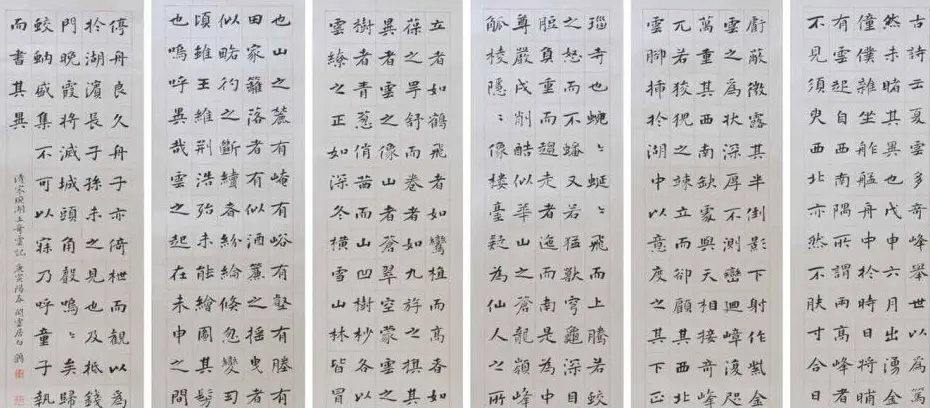 古詩云夏雲多奇峰舉世以為篤
然未睹其異也戊申六月出湧金
僮僕雜坐舴艋舟中於時日將晡
有雲起自西南隅所謂兩高峰者
不見須臾西北亦然不膚寸合日
翳蔽微露其半倒影下射作紫金
雲之為狀深厚不測巒迴嶂複咫
萬重其西南缺處與天相接奇峰
兀若狻猊之竦立而卻顧其下北
雲腳插於湖中以意而度之其下正
瑙寺也蜿〻蜒〻飛而上騰若蛟
之怒而不蟠又若猛獸穹龜深目
脰負重而趨走者迤而南是為中
尊嚴戌削酷似華山之蒼龍嶺峰
觚棱隱〻樓臺疑為仙人之所
立者如鶴飛者如鸞植而高者如
葆之旱舒而卷者如九斿之旗其
異者雲之像而山者蒼翠空蒙雲
樹者青蔥俏茜而山凹樹杪各以
雲繚之正如深冬橫雪山林皆冒
也山之麓有崦有峪有壑有塍有
田家籬落者有似酒簾之搖曳者
似略彴之斷續者紛綸倏忽變幻
頃雖王維荊浩殆未能繪圖其髣
也嗚呼異哉雲之起在未申之間
停舟良久舟子亦倚枻而觀以為
於湖濱長子孫未之見也及抵錢
門晚霞將滅城頭角聲嗚〻矣歸
蚊蚋盛集不可以寐乃呼童子執
而書其異
清宋琬湖上奇雲記 庚寅陽春閒雲居